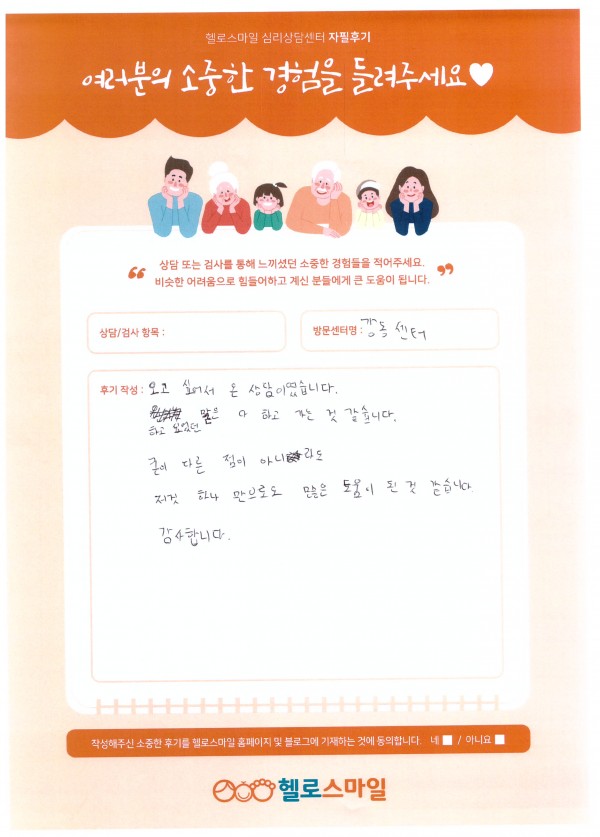 헬로스마일 심리상담센터 자필후기
여러분의 소중한 경험을 들려주세요
상담 또는 검사를 통해 느끼셨던 소중한 경험들을 적어주세요.
비슷한 어려움으로 힘들어하고 계신 분들에게 큰 도움이 됩니다.
상담/검사 항목 :
방문센터명 : 강동 센터
후기 작성 : 오고 싶어서 온 상담이였습니다.
말은 다 하고 가는 것 같습니다.
하고 싶었던
굳이 다른 점이 아니라도
저것 하나 만으로도 많은 도움이 된 것 같습니다
감사합니다.
작성해주신 소중한 후기를 헬로스마일 홈페이지 및 블로그에 기재하는 것에 동의합니다. 네 / 아니요
헬로스마일